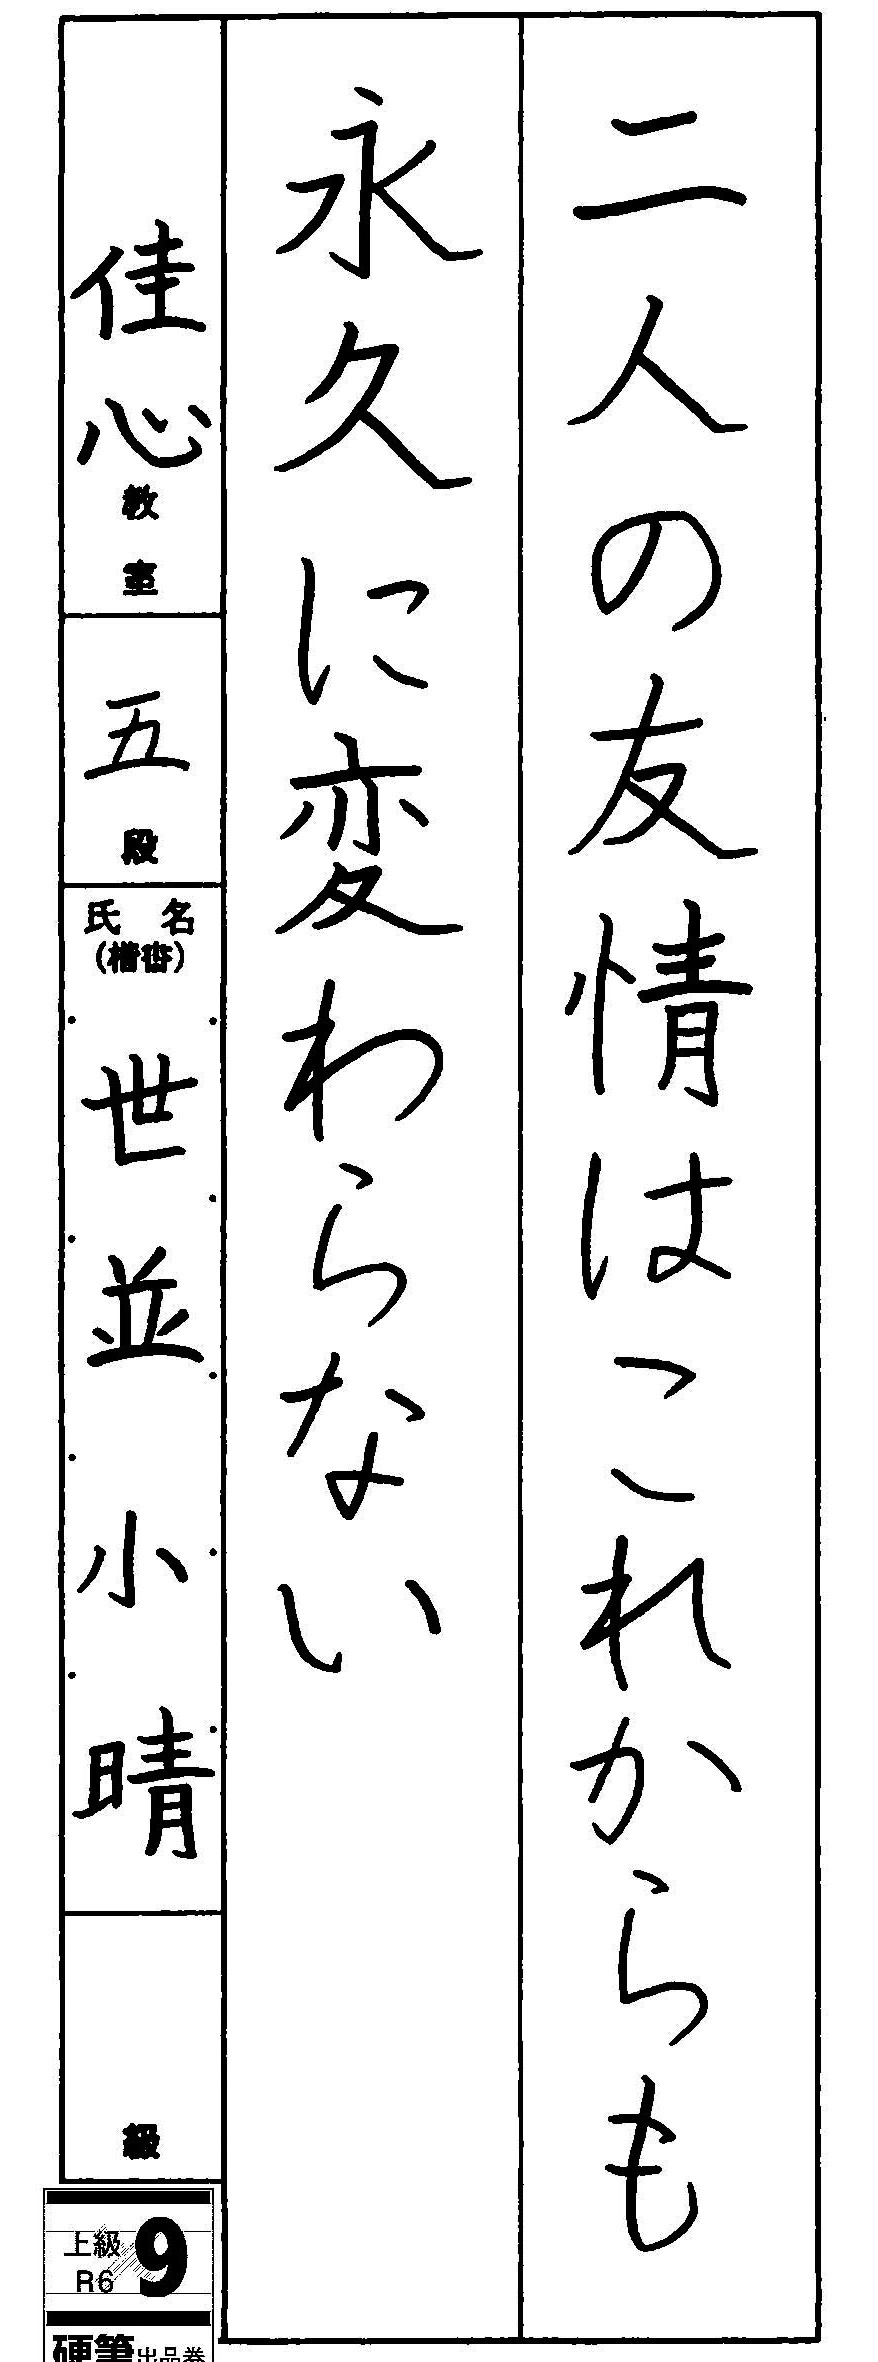 二人の友情はこれからも
永久に変わらない
佳心教室
五段
氏名
(楷書)
世並小晴
級
上級
R6
9
硬筆出品券